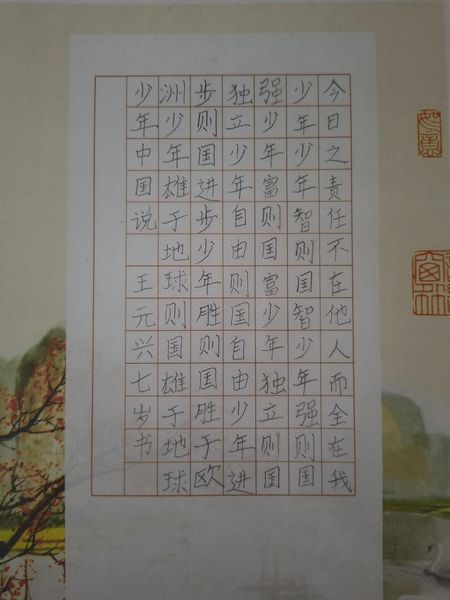 今日之责任不在他人而全在我
少年少年智则国智少年强则国
强少年富则国富少年独立则国
独立少年自由则国自由少年进
步则国进步少年胜则国胜于欧
洲少年雄于地球则国雄于地球
少年中国说 王元兴七岁书